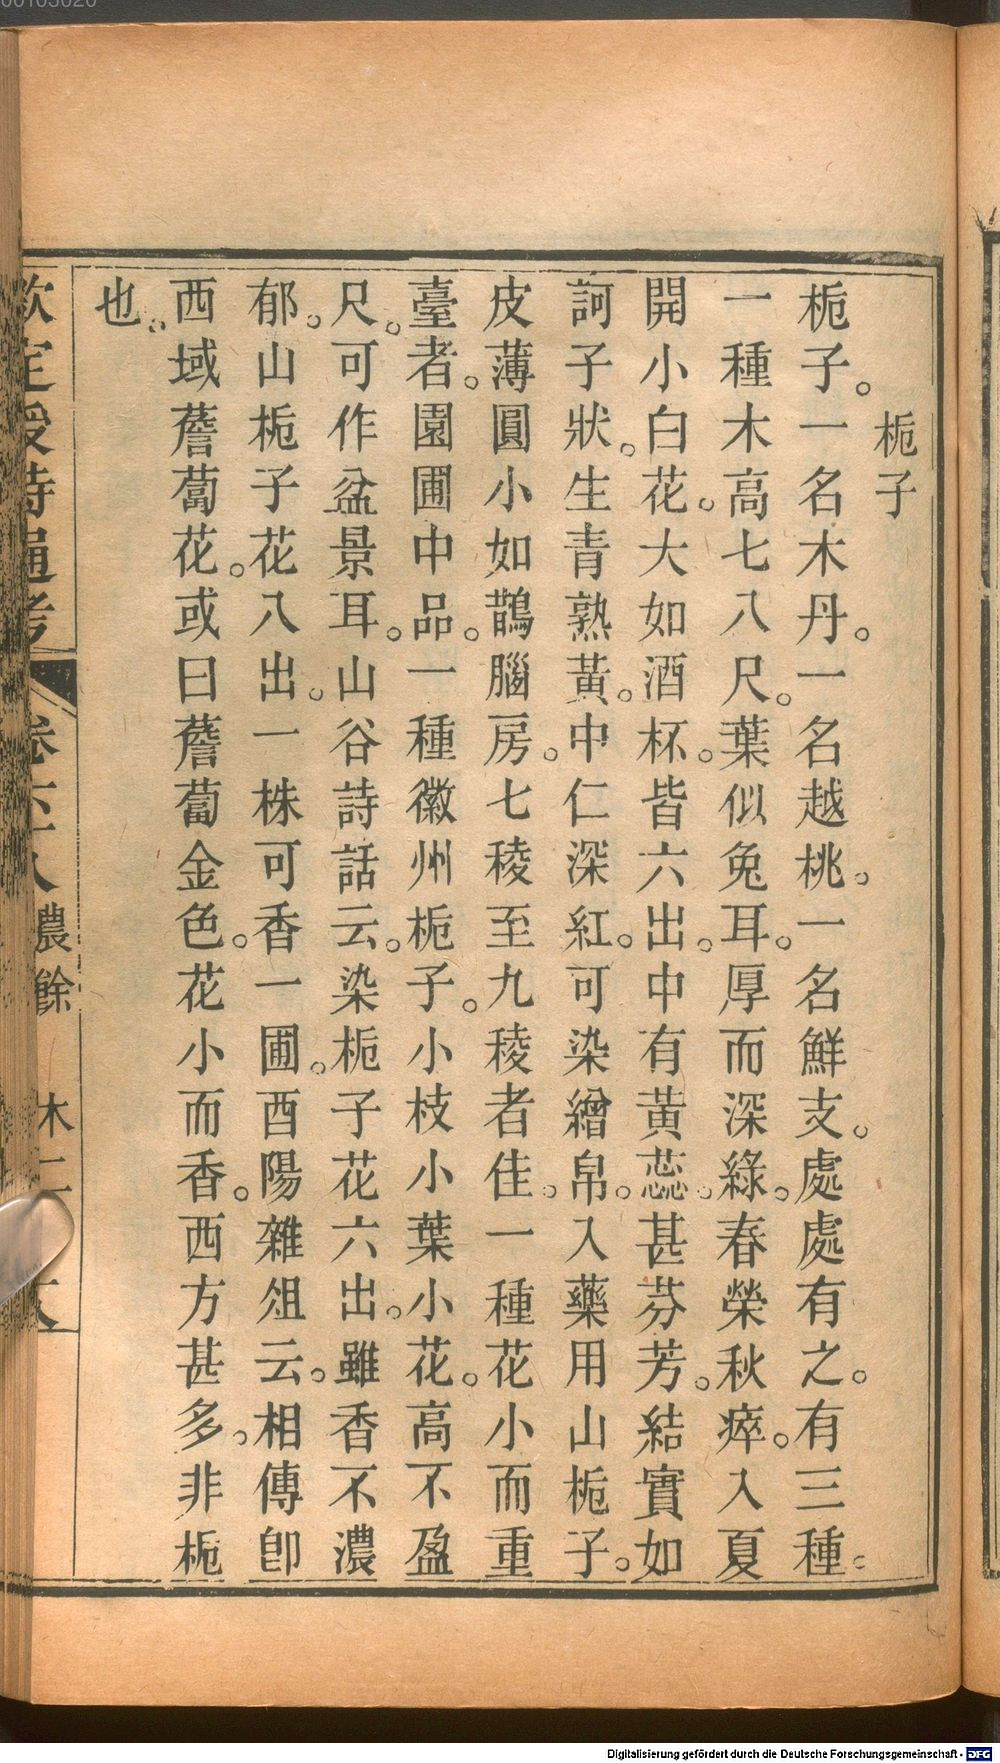 梔子
梔子。一名木丹。一名越桃。一名鮮支。處處有之。有三種。
一種木高七八尺。葉似兔耳。厚而深綠。春榮秋瘁。入夏
開小白花。大如酒杯。皆六出。中有黃蕊。甚芬芳。結實如
訶子狀。生青熟黃。中仁深紅。可染繒帛。入藥用山梔子。
皮薄圓小如鵲腦房。七稜至九稜者佳。一種花小而重
臺者。園圃中品。一種徽州梔子。小枝小葉小花。高不盈
尺。可作盆景耳。山谷詩話云。染梔子花六出。雖香不濃
郁。山梔子花八出。一株可香一圃。酉陽雜俎云。相傳卽
西域薝蔔花。或曰薝蔔金色。花小而香。西方甚多。非梔
也。
欽定授時通考 卷六十八 農餘 木二
00103020
Digitalisierung gefördert durch die Deutsche Forschungsgemeinschaft - DFG